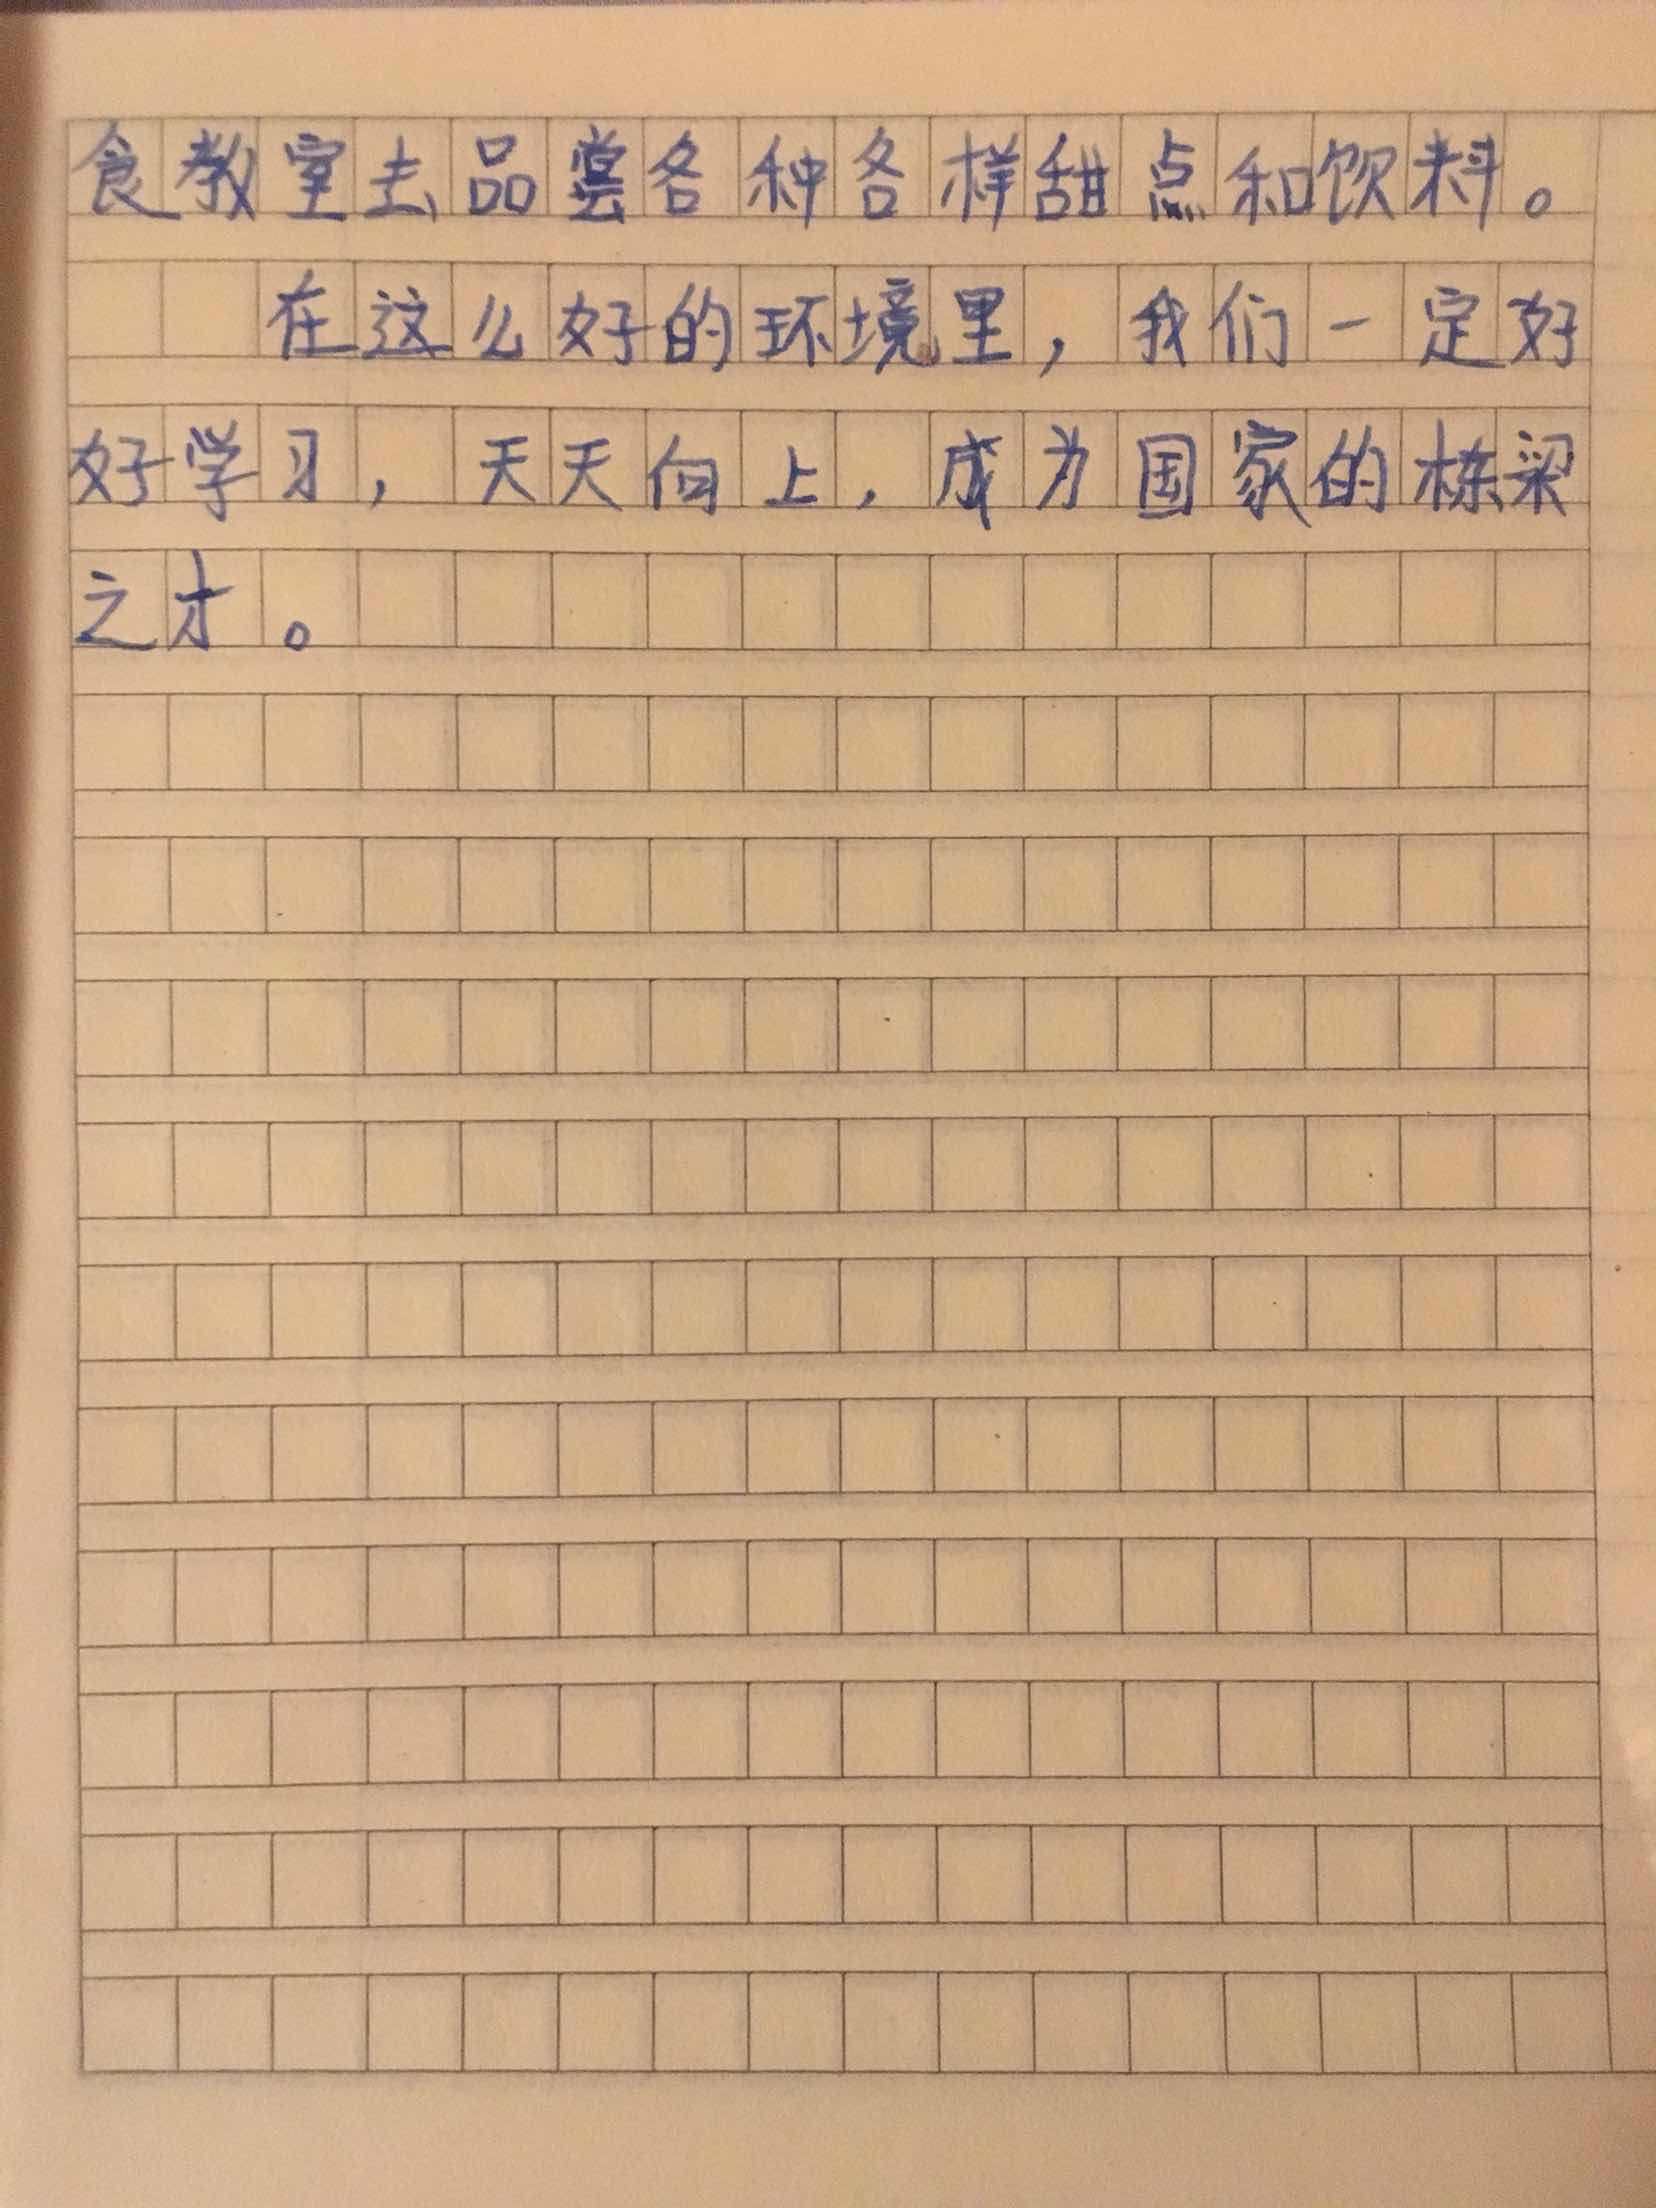 食教室去品尝各种各样甜点和饮料。
在这么好的环境里，我们一定好
好学习，天天向上，成为国家的栋梁
之才。